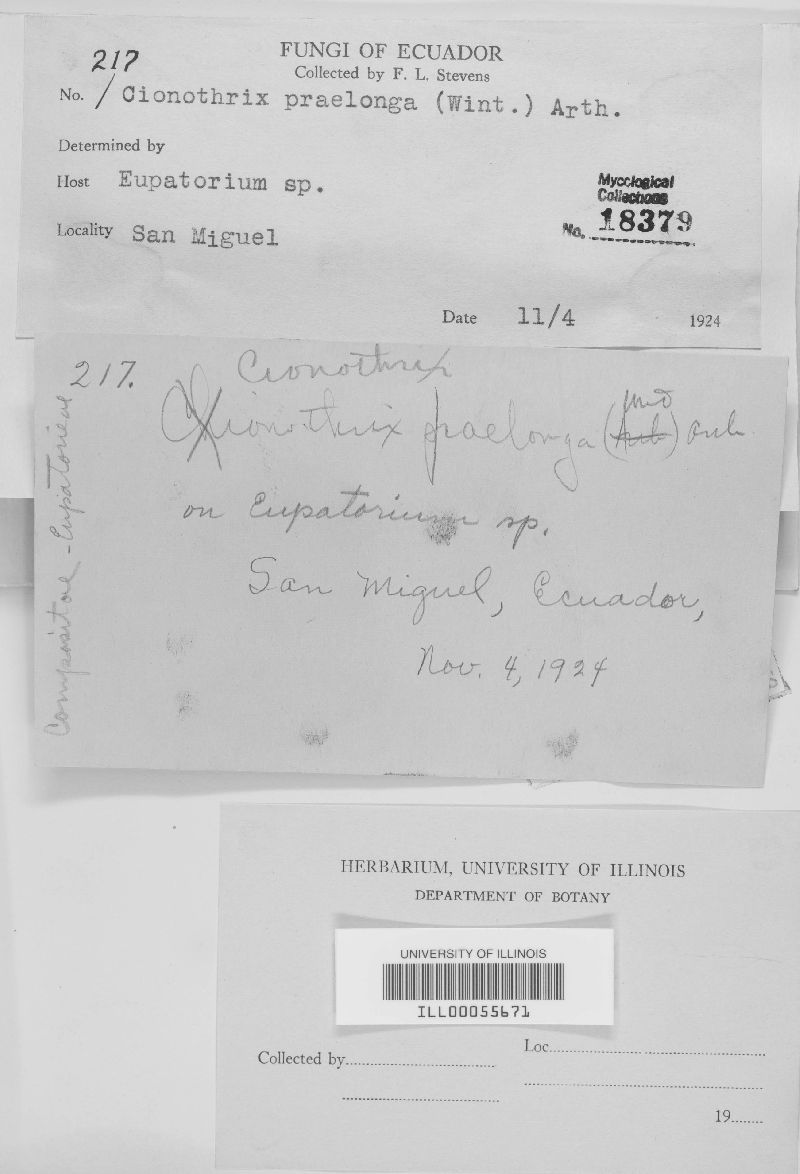 FUNGI OF ECUADOR
Collected by F. L. Stevens
217
No. / Cionothrix praelonga (Wint.) Arth.
Determined by
Host Eupatorium sp.
Mycological
Collections
No. 18379
Locality San Miguel
Date 11/4 1924
217. Cionothrix
Chionothrix praelonga () Arth
on Eupatorium sp.
San Miguel, Ecuador,
Nov. 4, 1924
Compositae - Eupatorieae
HERBARIUM, UNIVERSITY OF ILLINOIS
DEPARTMENT OF BOTANY
UNIVERSITY OF ILLINOIS
ILL00055671
Collected by
Loc.
19